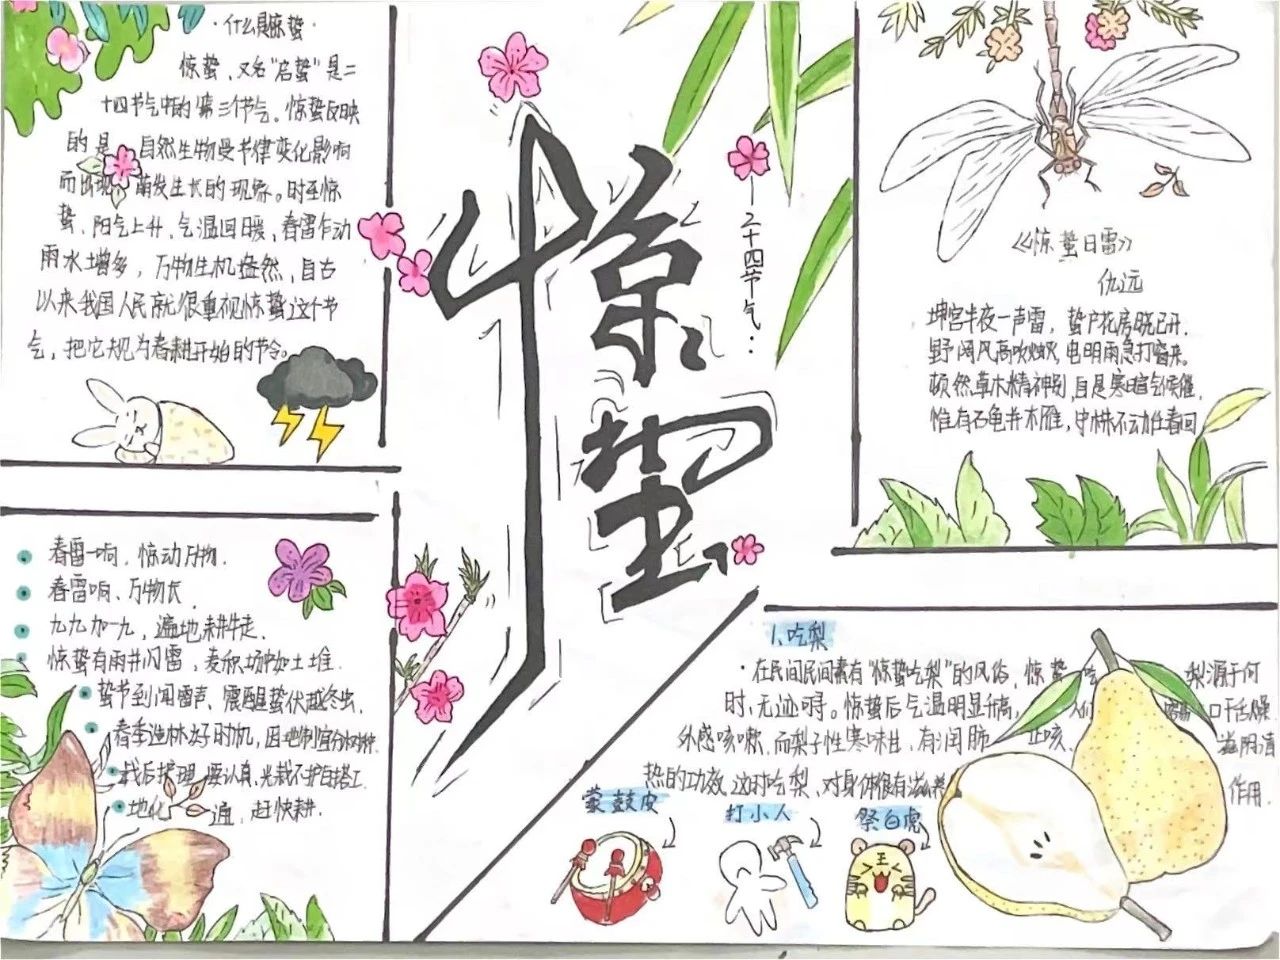 ·什么是惊蛰·
惊蛰，又名“启蛰”是二
十四节气中的第三个节气。惊蛰反映
的是自然生物受节律变化影响
而出现萌发生长的现象。时至惊
蛰，阳气上升，气温回暖，春雷乍动
雨水增多，万物生机盎然，自古
以来我国人民就很重视惊蛰这个节
气，把它视为春耕开始的节令。
惊蛰
二十四节气：
《惊蛰日雷》
仇远
坤宫半夜一声雷，蛰户花房晓已开.
野阔风高吹烛灭，电明雨急打窗来。
顿然草木精神别，自是寒暄气候催.
惟有石龟并木雁，守株不动任春回
春雷一响，惊动万物.
春雷响、万物长
九九加一九，遍地耕牛走.
惊蛰有雨并闪雷，麦积场中如土堆.
蛰节到闻雷声、震醒蛰伏越冬虫.
春季造林好时机，因地制宜分树种.
栽后护理要认真，光栽不护白搭工.
地化通，赶快耕.
1.吃梨
·在民间民间素有“惊蛰吃梨”的风俗，惊蛰吃梨源于何
时，无迹可寻。惊蛰后气温明显升高，人们容易口干舌燥
外感咳嗽.而梨子性寒味甘，有润肺止咳、滋阴清
热的功效，这时吃梨、对身体很有滋养作用.
蒙鼓皮
打小人
祭白虎
王